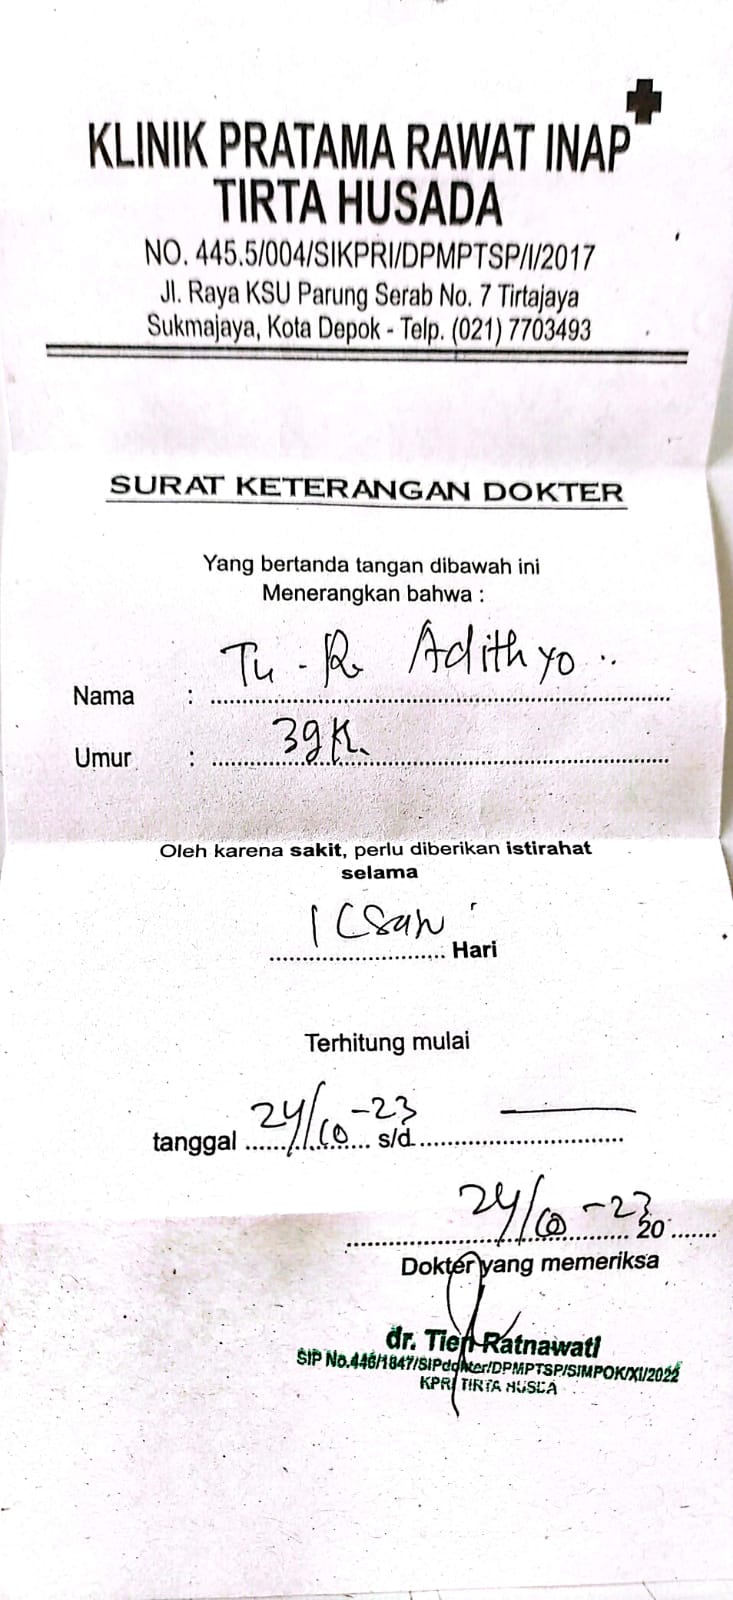 KLINIK PRATAMA RAWAT INAP
TIRTA HUSADA
NO. 445.5/004/SIKPRI/DPMPTSP/I/2017
Jl. Raya KSU Parung Serab No. 7 Tirtajaya
Sukmajaya, Kota Depok - Telp. (021) 7703493
SURAT KETERANGAN DOKTER
Yang bertanda tangan dibawah ini
Menerangkan bahwa :
Nama : Tn - R. Adithyo
Umur : 39
Oleh karena sakit, perlu diberikan istirahat
selama
1 (Satu) Hari
Terhitung mulai
tanggal 24/10-23 s/d
24/10-23 20
Dokter yang memeriksa
dr. Tien Ratnawati
SIP No.446/1847/SIPdokter/DPMPTSP/SIMPOK/XI/2022
KPRI TIRTA HUSDA